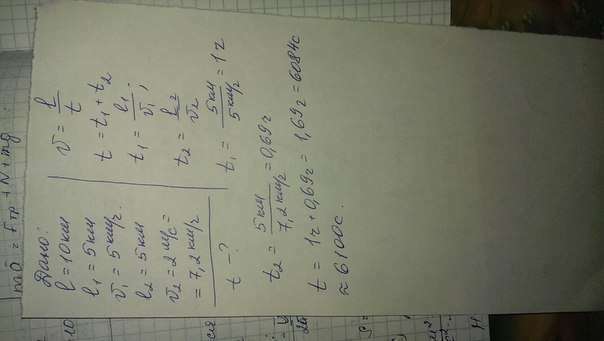 Дано:
l = 10 км
l₁ = 5 км
v₁ = 5 км/ч.
l₂ = 5 км
v₂ = 2 м/с =
= 7,2 км/ч
t - ?
v = l/t
t = t₁ + t₂
t₁ = l₁/v₁;
t₂ = l₂/v₂
t₁ = 5 км/5 км/ч = 1 ч
t₂ = 5 км/7,2 км/ч = 0,69 ч
t = 1 ч + 0,69 ч = 1,69 ч = 6084 с
≈ 6100 с.